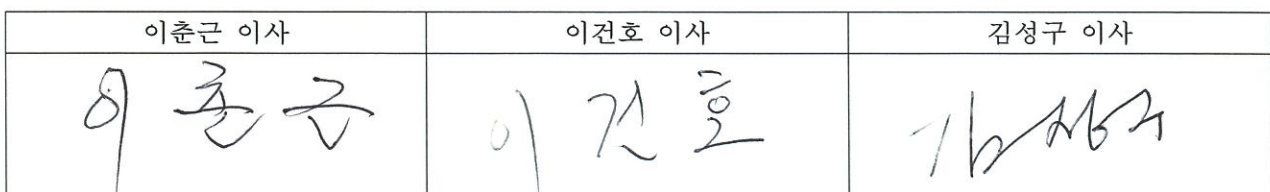 이춘근 이사 이건호 이사 김성구 이사
이춘근 이건호 김성구